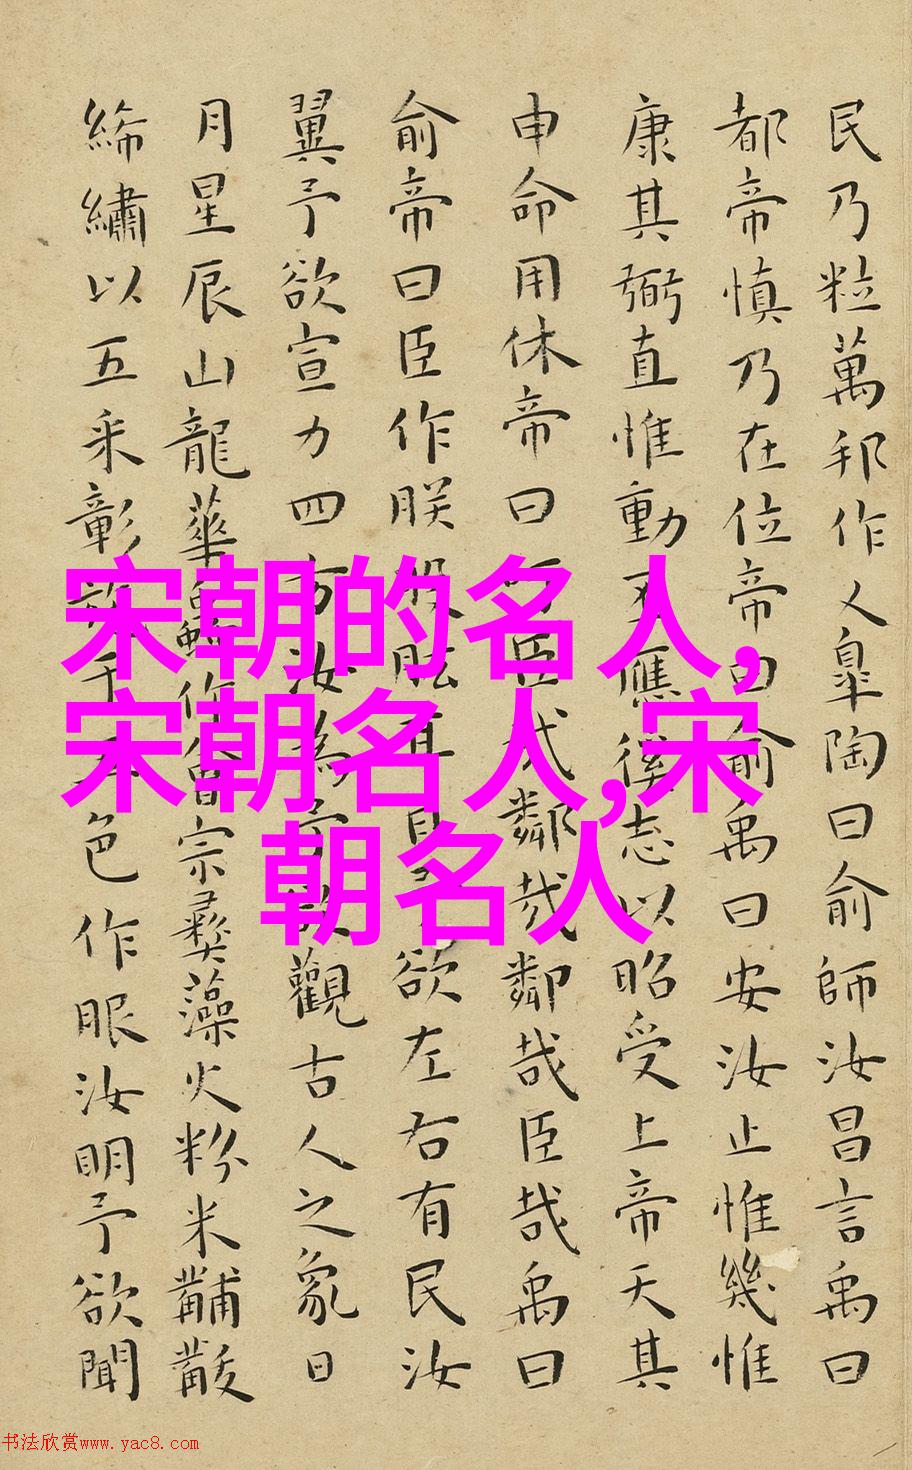 民乃粒萬邦作乂皐陶曰俞師汝昌言禹曰
都帝慎乃在位帝曰俞禹曰安汝止惟幾惟
康其弼直惟動丕應徯志以昭受上帝天其
申命用休帝曰吁臣哉鄰哉鄰哉臣哉禹曰
俞帝曰臣作朕股肱耳目予欲左右有民汝
翼予欲宣力四方汝為予欲觀古人之象日
月星辰山龍華蟲作會宗彝藻火粉米黼黻
絺繡以五采彰施于五色作服汝明予欲聞
宋朝的名人,
宋朝名人,宋
朝名人
书法欣赏www.yac8.com